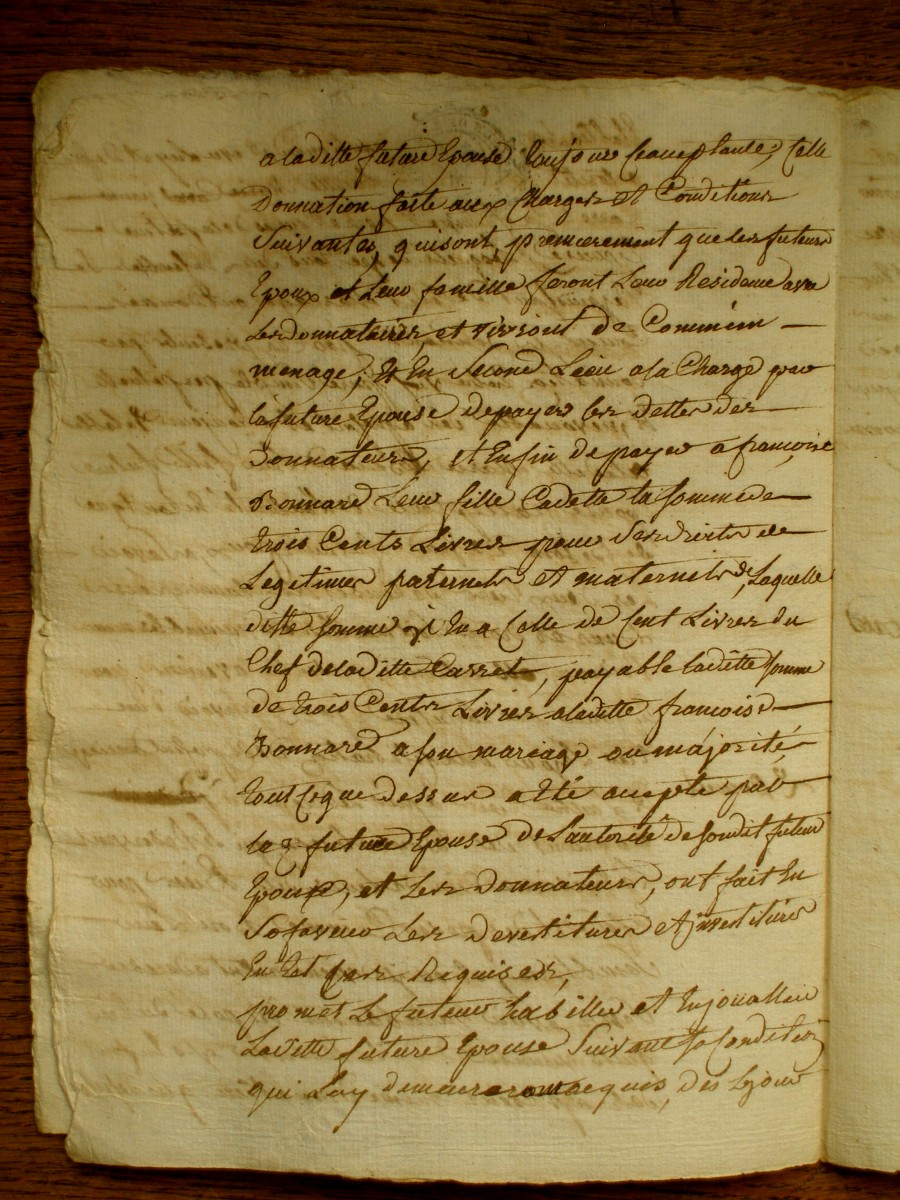 a laditte future Epouse toujour acceptante, Celle
Donnation faite aux Charges et Conditions
Suivantes, qui sont, premierement que les futurs
Epoux et Leur famille feront Leur Residence avec
Les donnataires, et vivront de Commun
menage, Et En Second Lieu a la Charge par
la future Epouse de payer les dettes des
Donnateurs, et Enfin de payer a françoise
Bonnard Leur fille Cadette la somme de
trois Cents Livres pour ses droits de
Legitimes paternels et maternels, de Laquelle
ditte somme y En a Celle de Cent Livres du
Chef de laditte Carret, payable laditte somme
de trois Cents Livres a laditte francoise
Bonnard a son mariage ou majorité,
tout Ce que dessus a Eté accepté par
la future Epouse de L'autorité de son dit futur
Epoux, et Les Donnateurs, ont fait En
Sa faveur Les devestitures et investitures
En tel cas Requises,
promet Le futeur habiller et Enjouaillier
Laditte future Epouse Suivant Sa Condition
qui Luy demeureront acquis, des Lejour